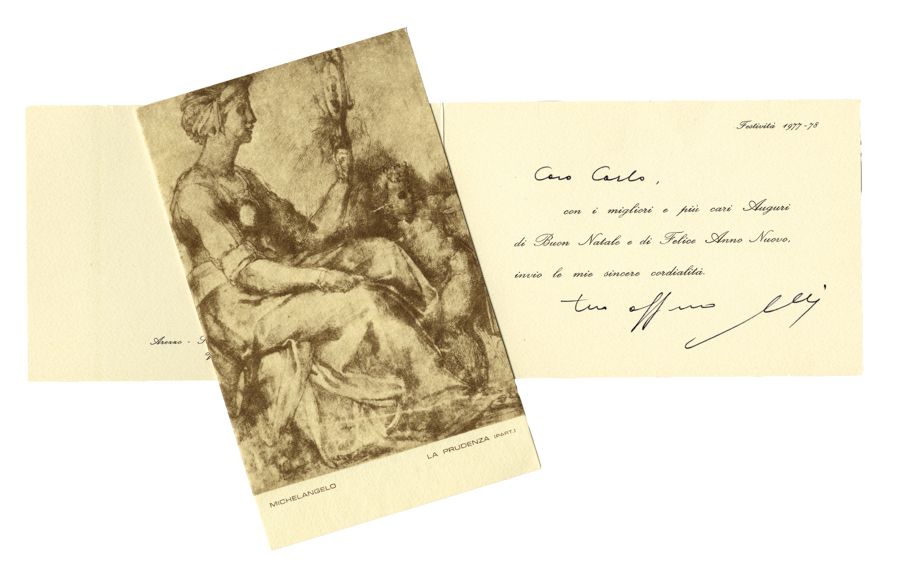 Festività 1977-78
Caro Carlo,
con i migliori e più cari Auguri
di Buon Natale e di Felice Anno Nuovo,
invio le mie sincere cordialità.
tuo aff.mo
Arezzo -
MICHELANGELO
LA PRUDENZA (PART.)